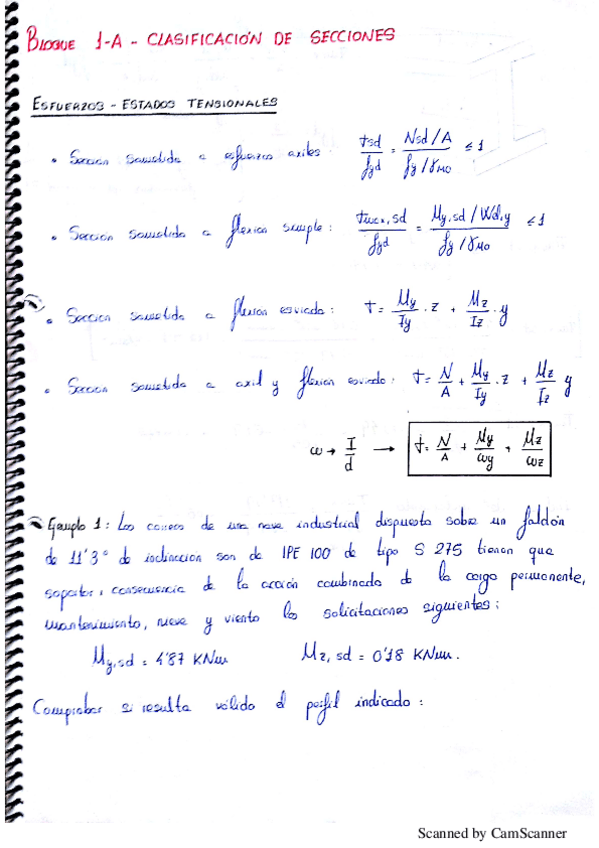 BLOQUE 1-A - CLASIFICACIÓN DE SECCIONES
ESFUERZOS - ESTADOS TENSIONALES
• Sección sometida a esfuerzos axiles: σsd / fyd = (Nsd/A) / (fy/γM0) ≤ 1
• Sección sometida a flexión simple: σmax,sd / fyd = (My,sd / Wel,y) / (fy/γM0) ≤ 1
• Sección sometida a flexión esviada: σ = My/Iy · z + Mz/Iz · y
• Sección sometida a axil y flexión esviada: σ = N/A + My/Iy · z + Mz/Iz y
ω → I/d → σ = N/A + My/ωy + Mz/ωz
Ejemplo 1: Las correas de una nave industrial dispuesta sobre un faldón
de 11'3° de inclinación son de IPE 100 de tipo S 275 tienen que
soportar, consecuencia de la acción combinada de la carga permanente,
mantenimiento, nieve y viento las solicitaciones siguientes:
My,sd = 4'87 KNm Mz,sd = 0'18 KNm.
Comprobar si resulta válido el perfil indicado:
Scanned by CamScanner